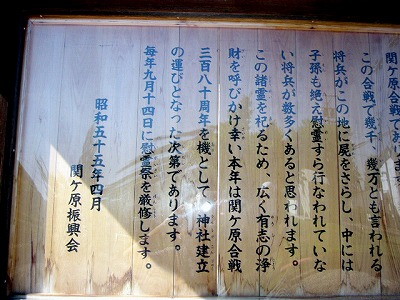 関ケ原合戦
この合戦で幾千、幾万とも言われる
将兵がこの地に屍をさらし、中には
子孫も絶え慰霊すら行なわれていな
い将兵が数多くあると思われます。
この諸霊を祀るため、広く有志の浄
財を呼びかけ幸い本年は関ケ原合戦
三百八十周年を機として、神社建立
の運びとなった次第であります。
毎年九月十四日に慰霊祭を厳修します。
昭和五十五年四月
関ケ原振興会